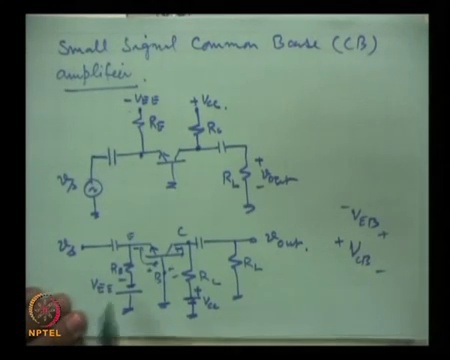 Small Signal Common Base (CB)
amplifier.
-VEE +VCC
RE RL
vs RL + vout -
vs E C vout
RE B RL RL
VEE VCC
- VEB +
+ VCB -
NPTEL